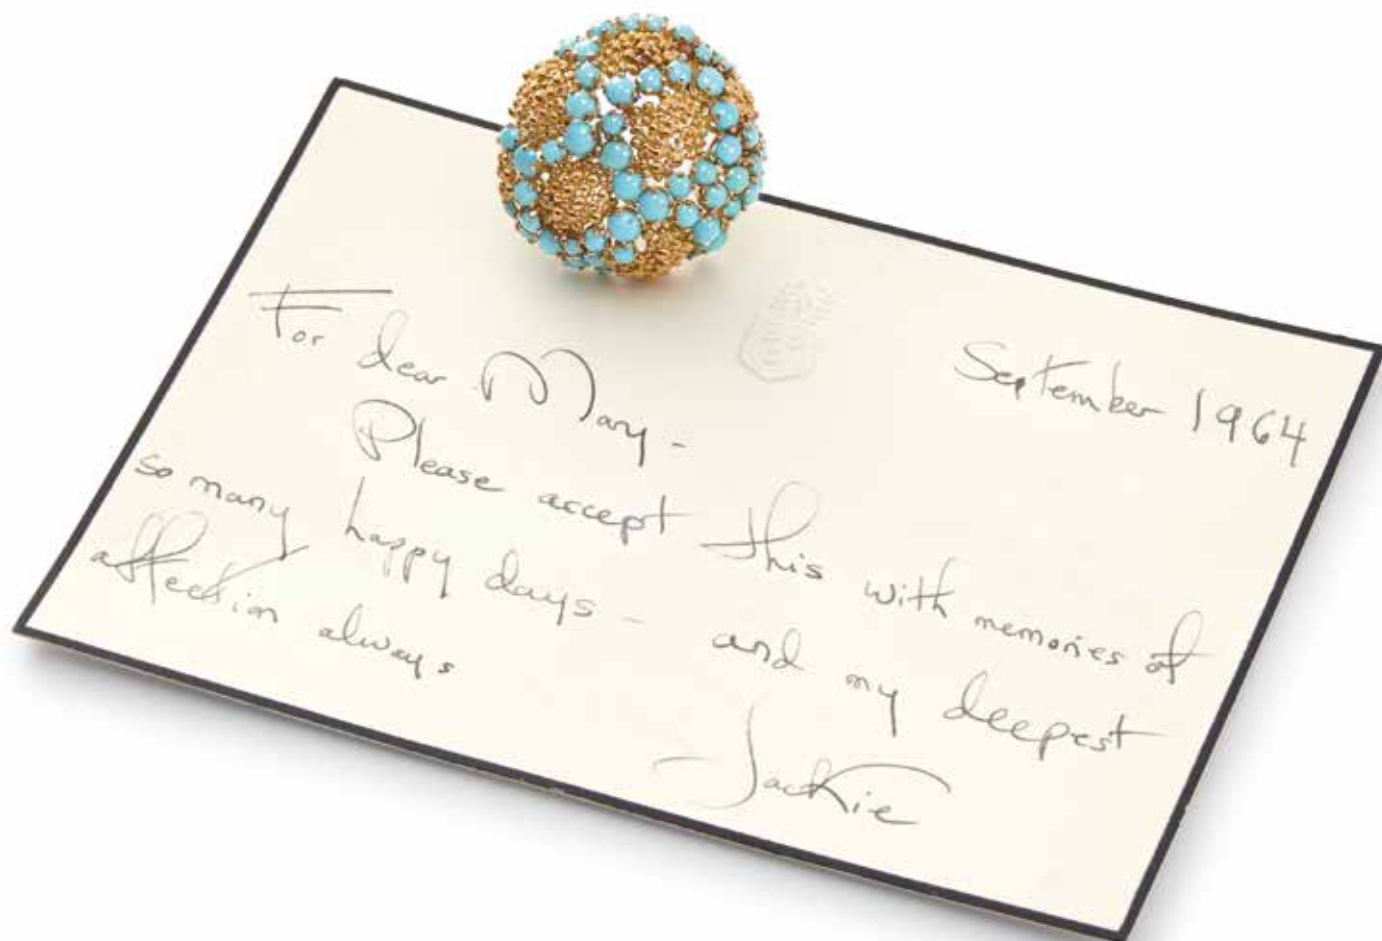 September 1964
For dear Mary -
Please accept this with memories of
so many happy days - and my deepest
affection always
Jackie